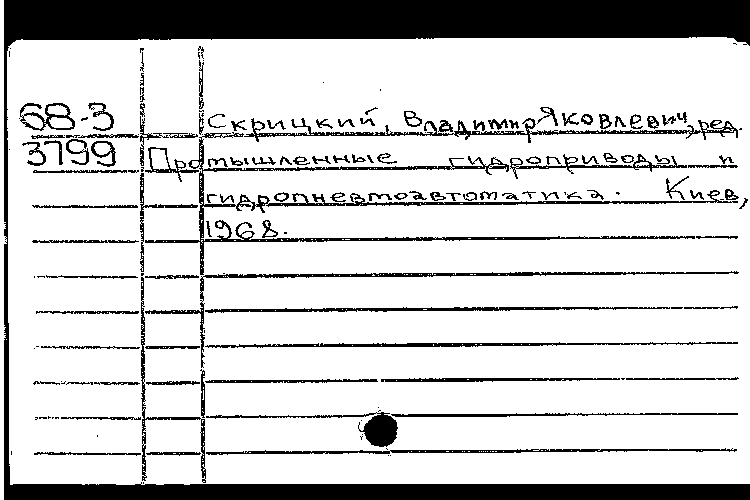 68-3 Скрицкий, Владимир Яковлевич, ред.
3799 Промышленные гидроприводы и
гидропневмоавтоматика. Киев,
1968.